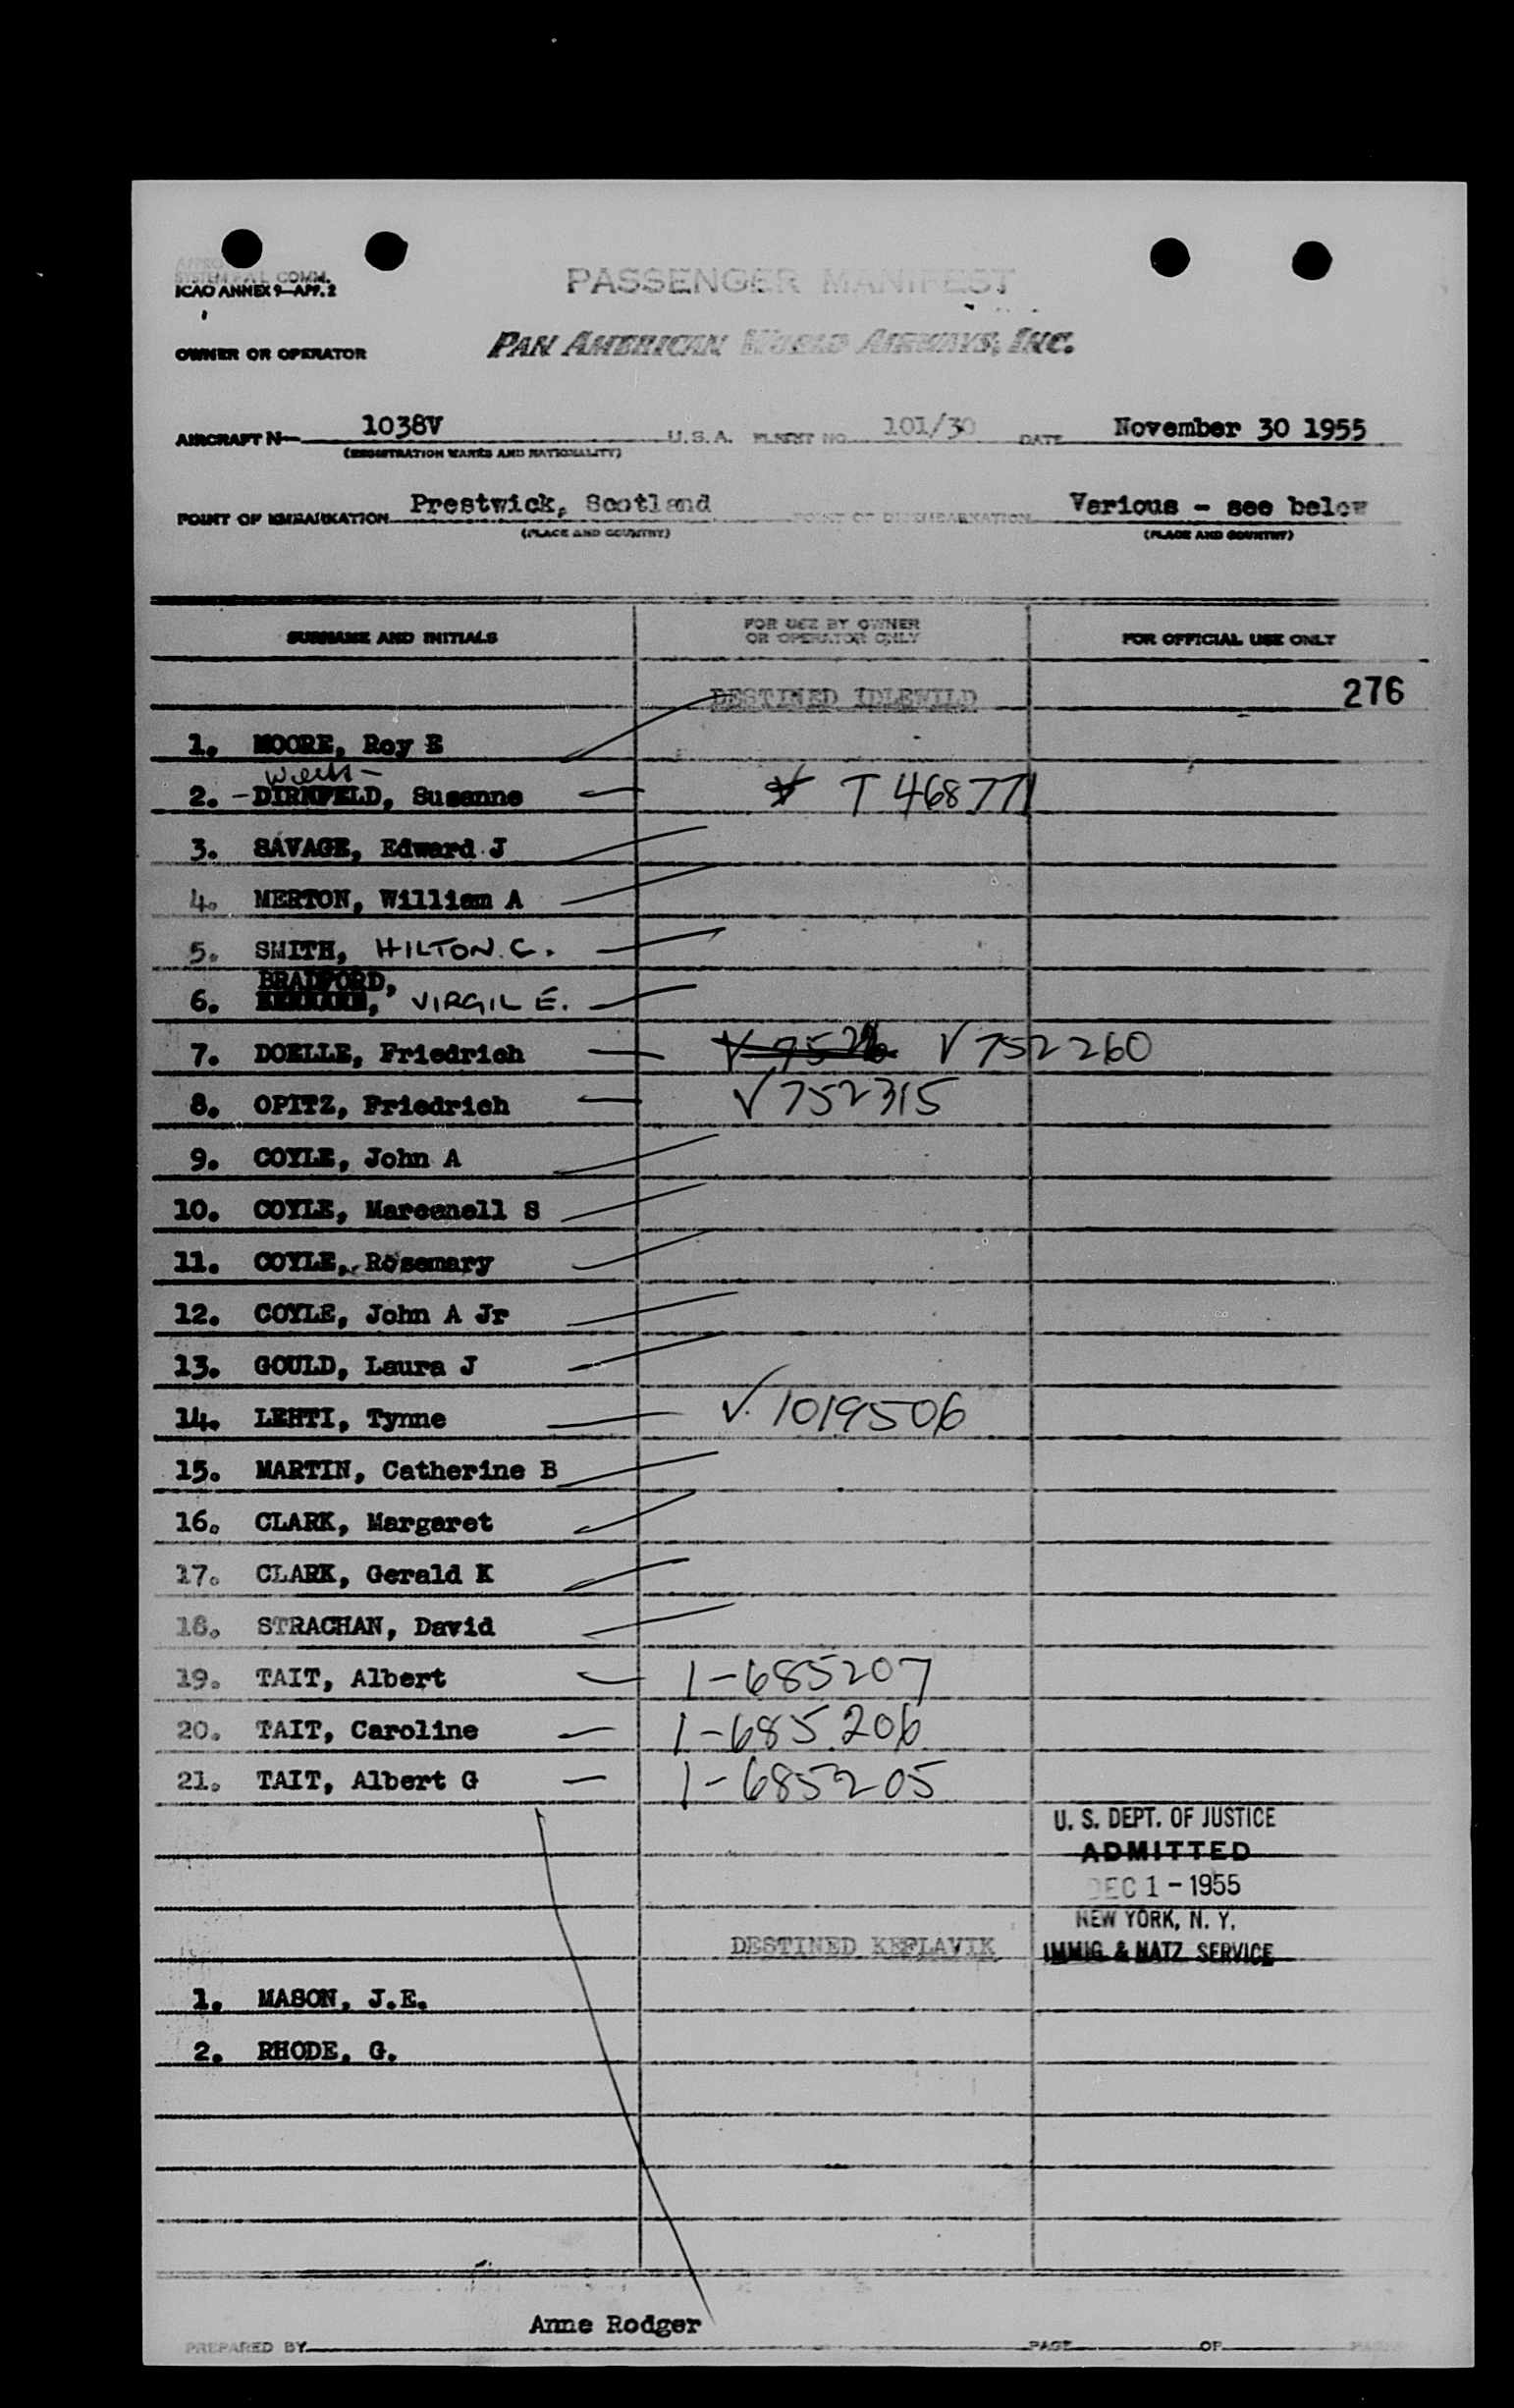 SYSTEM F.A.L. COMM.
ICAO ANNEX 9—APP. 2
PASSENGER MANIFEST
OWNER OR OPERATOR PAN AMERICAN WORLD AIRWAYS, INC.
AIRCRAFT N— 1038V U.S.A. FLIGHT NO. 101/30 DATE November 30 1955
(REGISTRATION MARKS AND NATIONALITY)
POINT OF EMBARKATION Prestwick, Scotland POINT OF DISEMBARKATION Various - see below
(PLACE AND COUNTRY) (PLACE AND COUNTRY)
SURNAME AND INITIALS FOR USE BY OWNER OR OPERATOR ONLY FOR OFFICIAL USE ONLY
DESTINED IDLEWILD 276
1. MOORE, Roy E
2. -DIRNFELD, Susanne T 468771
3. SAVAGE, Edward J
4. MERTON, William A
5. SMITH, HILTON C.
BRADFORD,
6. VIRGIL E.
7. DOELLE, Friedrich V 752260
8. OPITZ, Friedrich V 752315
9. COYLE, John A
10. COYLE, Marcenell S
11. COYLE, Rosemary
12. COYLE, John A Jr
13. GOULD, Laura J
14. LEHTI, Tynne V. 1019506
15. MARTIN, Catherine B
16. CLARK, Margaret
17. CLARK, Gerald K
18. STRACHAN, David
19. TAIT, Albert 1-685207
20. TAIT, Caroline 1-685206
21. TAIT, Albert G 1-685205
U. S. DEPT. OF JUSTICE
ADMITTED
DEC 1 - 1955
NEW YORK, N. Y.
DESTINED KEFLAVIK IMMIG. & NATZ. SERVICE
1. MASON, J.E.
2. RHODE, G.
Anne Rodger
PREPARED BY PAGE OF